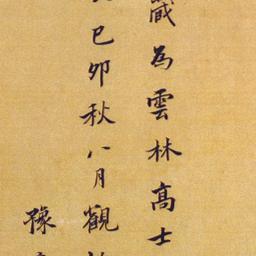 藏為雲林高士
已卯秋八月觀
豫